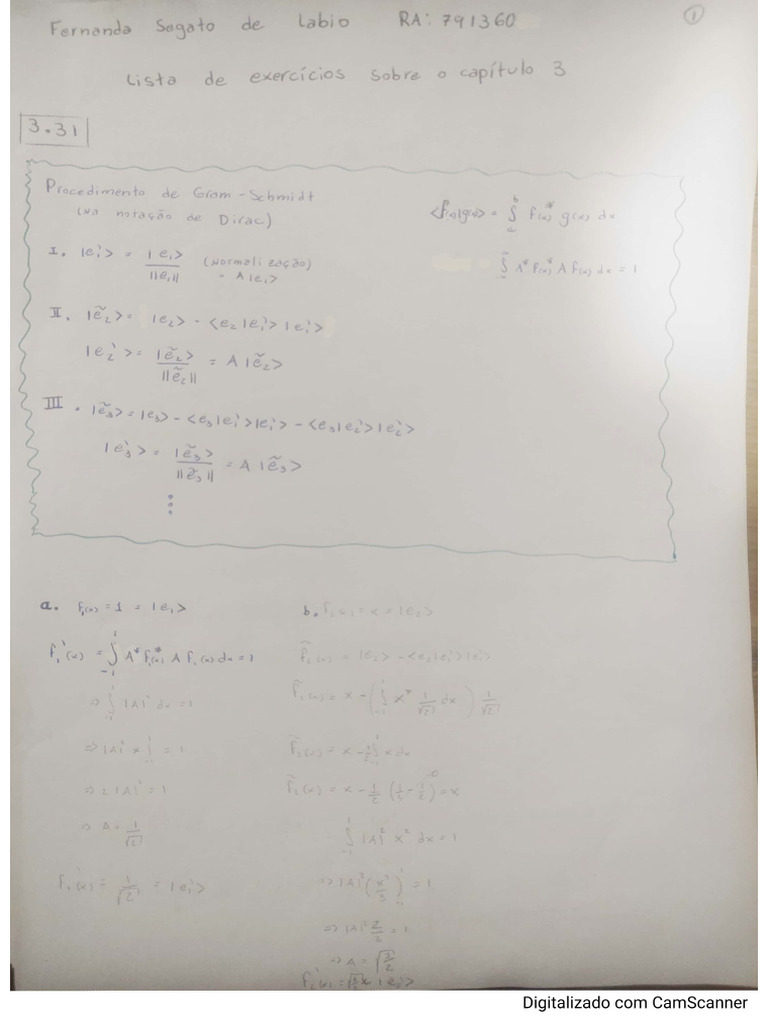 ①
Fernanda Sagato de Labio RA: 791360
Lista de exercícios sobre o capítulo 3
3.31
Procedimento de Gram-Schmidt
(na notação de Dirac)
<f(x)|g(x)> = ∫ₐᵇ f(x)* g(x) dx
I. |e₁'> = |e₁>/||e₁|| (normalização) = A|e₁>
∫ A* f(x)* A f(x) dx = 1
II. |ẽ₂> = |e₂> - <e₂|e₁'>|e₁'>
|e₂'> = |ẽ₂>/||ẽ₂|| = A|ẽ₂>
III. |ẽ₃> = |e₃> - <e₃|e₁'>|e₁'> - <e₃|e₂'>|e₂'>
|e₃'> = |ẽ₃>/||ẽ₃|| = A|ẽ₃>
⋮
a. f₁(x) = 1 = |e₁>
f₁'(x) = ∫₋₁¹ A* f₁(x)* A f₁(x) dx = 1
=> ∫₋₁¹ |A|² dx = 1
=> |A|² x |₋₁¹ = 1
=> 2|A|² = 1
=> A = 1/√2
f₁'(x) = 1/√2 = |e₁'>
b. f₂(x) = x = |e₂>
f̃₂(x) = |e₂> - <e₂|e₁'>|e₁'>
f̃₂(x) = x - (∫₋₁¹ x* 1/√2 dx) 1/√2
f̃₂(x) = x - 1/2 ∫₋₁¹ x dx
f̃₂(x) = x - 1/2 (1/2 - 1/2)⁰ = x
∫₋₁¹ |A|² x² dx = 1
=> |A|² (x³/3)₋₁¹ = 1
=> |A|² 2/3 = 1
=> A = √(3/2)
f₂'(x) = √(3/2) x = |e₂'>
Digitalizado com CamScanner